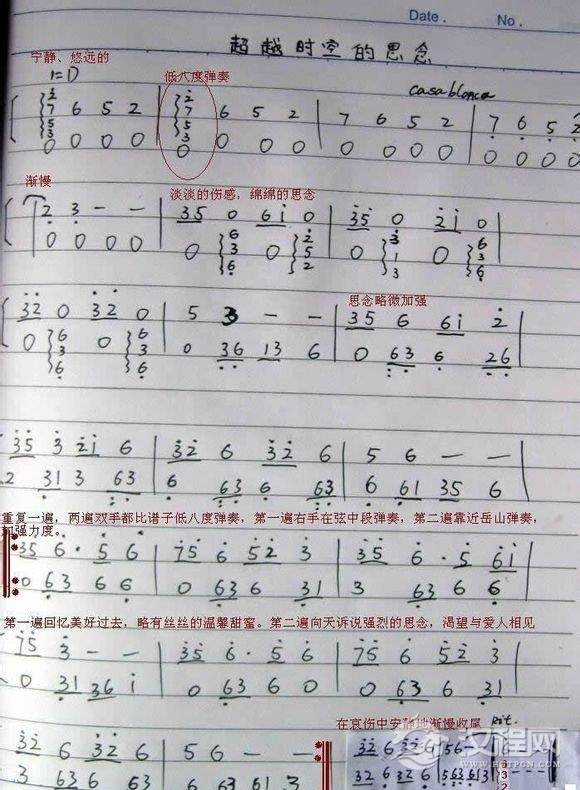 Date . No .
超越时空的思念
宁静、悠远的
1=D 低八度弹奏 casablanca
2 7 5 3 6 5 2 | 2 7 5 3 6 5 2 | 7 6 5 2 | 7 6 5 2
0 0 0 0 | 0 0 0 0 | 0 0 0 0 | 0 0 0 0
渐慢 淡淡的伤感，绵绵的思念
2 3 - - | 35 0 6i 0 | 35 0 2i 0
0 0 0 0 | 0 6 3 6 0 2 5 2 | 0 3 1 3 0 6 3 6
思念略微加强
32 0 32 0 | 5 3 - - | 35 6 6i 2
0 6 3 6 0 6 3 6 | 0 36 13 6 | 0 63 6 26
35 3 2i 6 | 32 6 32 6 | 5 6 - -
.2 31 3 63 | 6 63 6 63 | 6 61 35 6
重复一遍，两遍双手都比谱子低八度弹奏，第一遍右手在弦中段弹奏，第二遍靠近岳山弹奏，
加强力度。
35 6 · 5 6 | 75 6 52 3 | 35 6 · 5 6i
0 63 6 6 | 0 63 6 31 | 3 63 6 6
第一遍回忆美好过去，略有丝丝的温馨甜蜜。第二遍向天诉说强烈的思念，渴望与爱人相见
75 3 - - | 35 6 · 5 6 | 75 6 52 3
0 31 36 i | 0 63 6 0 | 0 63 6 31
在哀伤中安静地渐慢收尾 Rit.
32 6 32 6 | 56 - - | 32 6 32 6 | 56 - -
3 63 6 63 | 6 63 61 3 | 32 6 32 6 | 5 63 61 3
汉程网
HTTPCN.COM